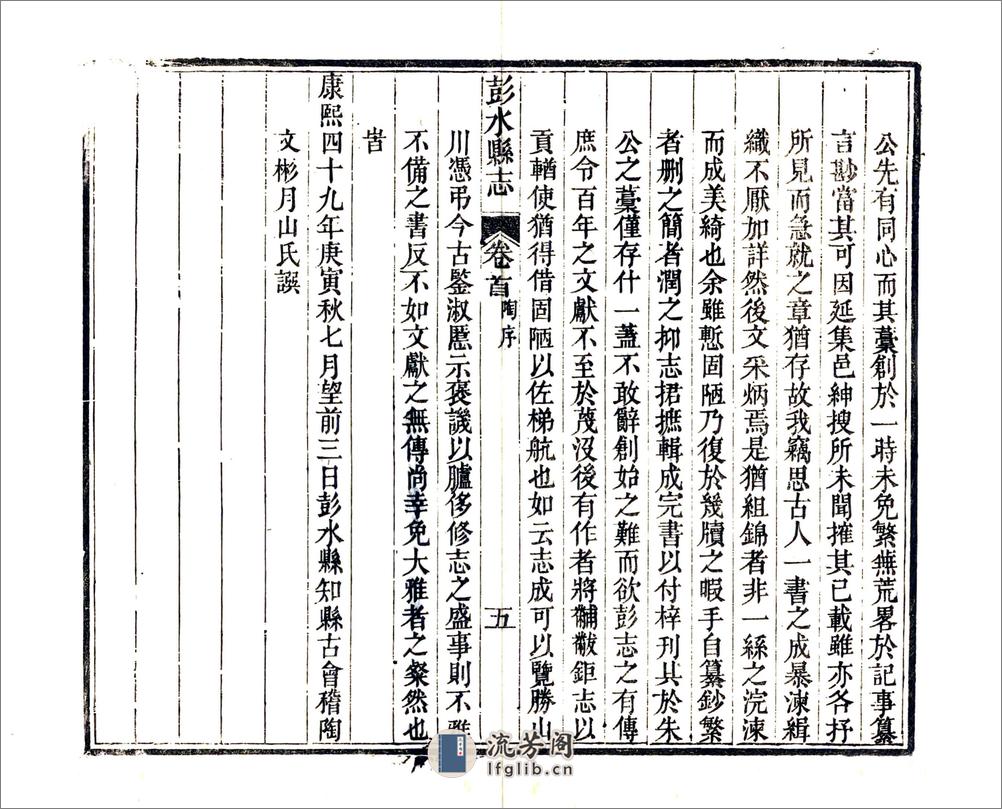 公先有同心而其藁創於一時未免繁蕪荒畧於記事纂
言尠當其可因延集邑紳搜所未聞摧其已載雖亦各抒
所見而急就之章猶存故我竊思古人一書之成暴湅緝
織不厭加詳然後文采炳焉是猶組錦者非一絲之浣湅
而成美綺也余雖慙固陋乃復於幾牘之暇手自纂鈔繁
者删之簡者潤之抑志捃摭輯成完書以付梓刊其於朱
公之藁僅存什一蓋不敢辭創始之難而欲彭志之有傳
庶令百年之文獻不至於蔑没後有作者將黼黻鉅志以
貢輶使猶得借固陋以佐梯航也如云志成可以覽勝山
彭水縣志
卷首
陶序
五
川憑弔今古鑒淑慝示褒譏以臚侈修志之盛事則不雅
不備之書反不如文獻之無傳尚幸免大雅者之粲然也
旹
康熙四十九年庚寅秋七月望前三日彭水縣知縣古會稽陶
文彬月山氏譔
流芳阁
lfglib.cn